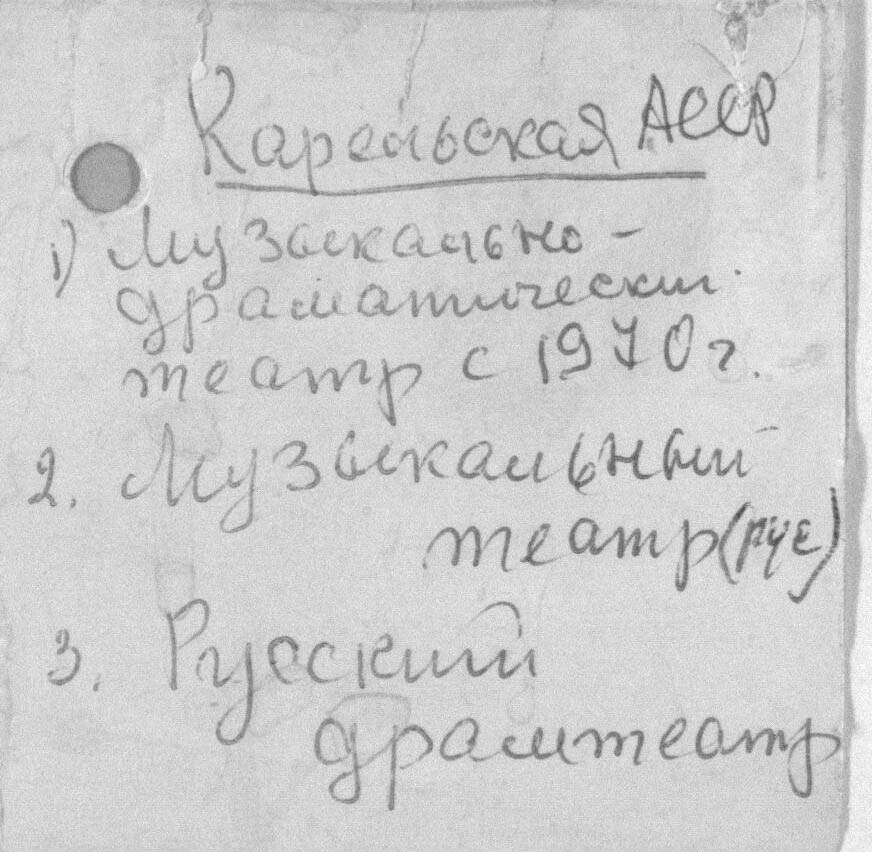 Карельская АССР
1) Музыкально-
драматический
театр с 1970 г.
2. Музыкальный
театр (рус)
3. Русский
драмтеатр